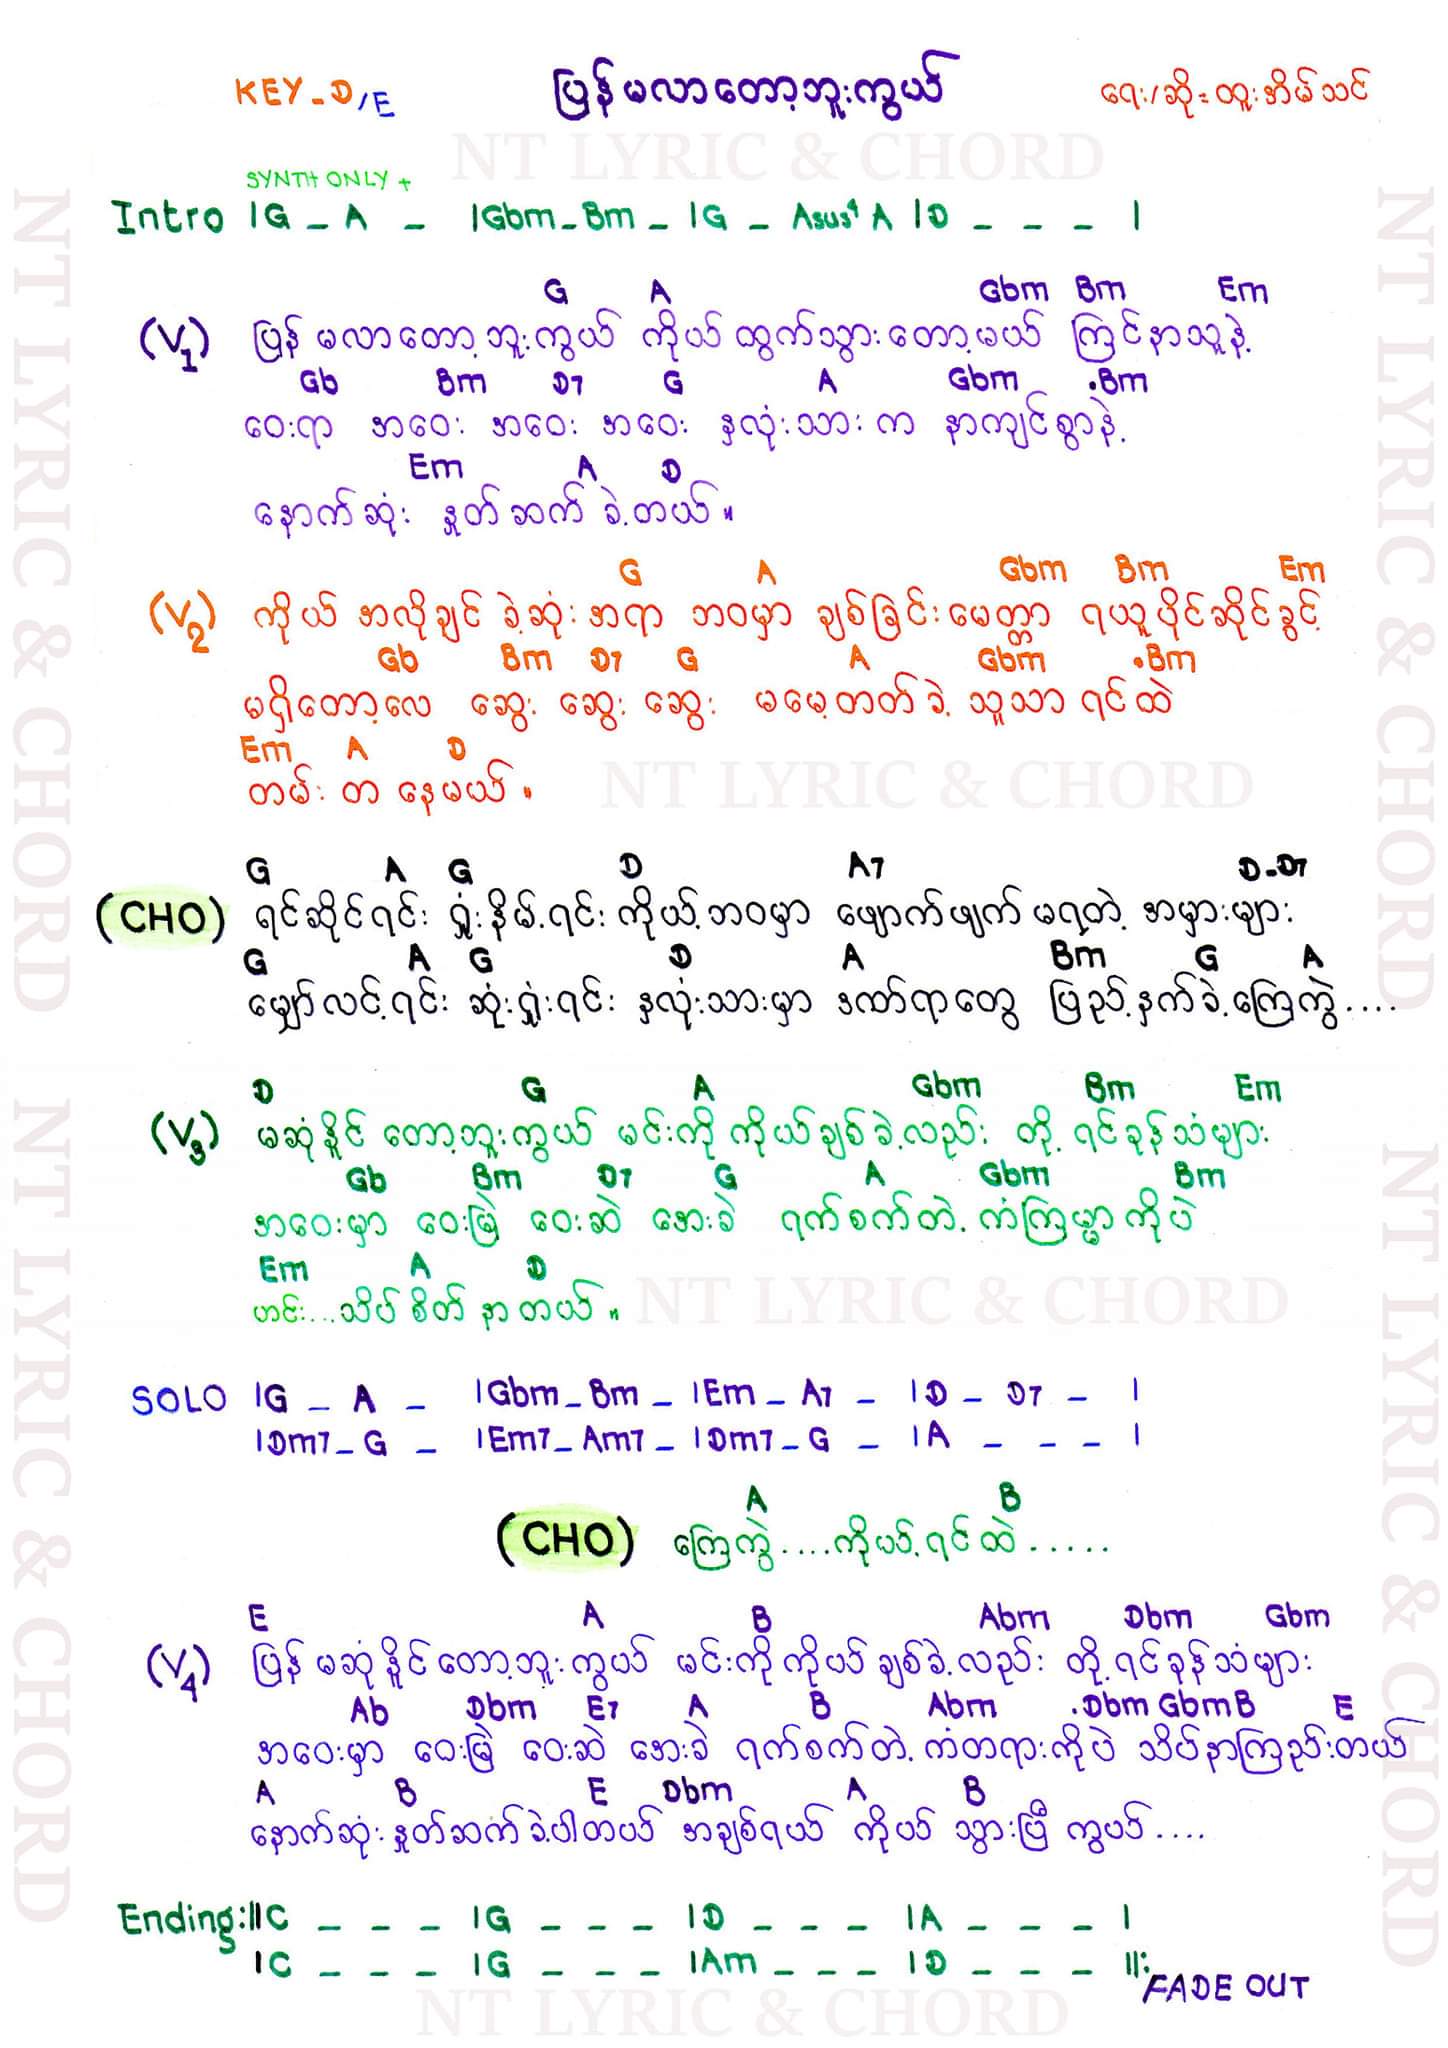 KEY - D/E ပြန်မလာတော့ဘူးကွယ် ရေး/ဆို = ထူးအိမ်သင်
NT LYRIC & CHORD
SYNTH ONLY +
Intro |G _ A _ |Gbm _ Bm _ |G _ Asus4 A |D _ _ _ |
G A Gbm Bm Em
(V1) ပြန် မလာတော့ဘူးကွယ် ကိုယ် ထွက်သွားတော့မယ် ကြင်နာသူနဲ့
Gb Bm D7 G A Gbm .Bm
ဝေးရာ အဝေး အဝေး အဝေး နှလုံးသားက နာကျင်စွာနဲ့
Em A D
နောက်ဆုံး နှုတ်ဆက်ခဲ့တယ်။
G A Gbm Bm Em
(V2) ကိုယ် အလိုချင် ခဲ့ဆုံးအရာ ဘဝမှာ ချစ်ခြင်းမေတ္တာ ရယူပိုင်ဆိုင်ခွင့်
Gb Bm D7 G A Gbm .Bm
မရှိတော့လေ ဆွေး ဆွေး ဆွေး မမေ့တတ်ခဲ့ သူသာ ရင်ထဲ
Em A D
တမ်း တ နေမယ်။
NT LYRIC & CHORD
G A G D A7 D-D7
(CHO) ရင်ဆိုင်ရင်း ရှုံးနိမ့်ရင်း ကိုယ့်ဘဝမှာ ဖျောက်ဖျက် မရတဲ့ အမှားများ
G A G D A Bm G A
မျှော်လင့်ရင်း ဆုံးရှုံးရင်း နှလုံးသားမှာ ဒဏ်ရာတွေ ပြည့်နှက်ခဲ့ကြေကွဲ....
D G A Gbm Bm Em
(V3) မဆုံနိူင်တော့ဘူးကွယ် မင်းကို ကိုယ်ချစ်ခဲ့လည်း တို့ ရင်ခုန်သံများ
Gb Bm D7 G A Gbm Bm
အဝေးမှာ ဝေးမြဲ ဝေးဆဲ အေးခဲ ရက်စက်တဲ့ ကံကြမ္မာကိုပဲ
Em A D
ဟင်း...သိပ်စိတ်နာတယ်။
NT LYRIC & CHORD
SOLO |G _ A _ |Gbm _ Bm _ |Em _ A7 _ |D _ D7 _ |
|Dm7 _ G _ |Em7 _ Am7 _ |Dm7 _ G _ |A _ _ _ |
A B
(CHO) ကြေကွဲ....ကိုယ့်ရင်ထဲ.....
E A B Abm Dbm Gbm
(V4) ပြန် မဆုံနိူင်တော့ဘူးကွယ် မင်းကိုကိုယ်ချစ်ခဲ့လည်း တို့ရင်ခုန်သံများ
Ab Dbm E7 A B Abm .Dbm Gbm B E
အဝေးမှာ ဝေးမြဲ ဝေးဆဲ အေးခဲ ရက်စက်တဲ့ ကံတရားကိုပဲ သိပ်နာကြည်းတယ်
A B E Dbm A B
နောက်ဆုံး နှုတ်ဆက်ခဲ့ပါတယ် အချစ်ရယ် ကိုယ် သွားပြီ ကွယ်....
Ending:||C _ _ _ |G _ _ _ |D _ _ _ |A _ _ _ |
|C _ _ _ |G _ _ _ |Am _ _ _ |D _ _ _ ||:
FADE OUT
NT LYRIC & CHORD
NT LYRIC & CHORD
NT LYRIC & CHORD
NT LYRIC & CHORD
NT LYRIC & CHORD